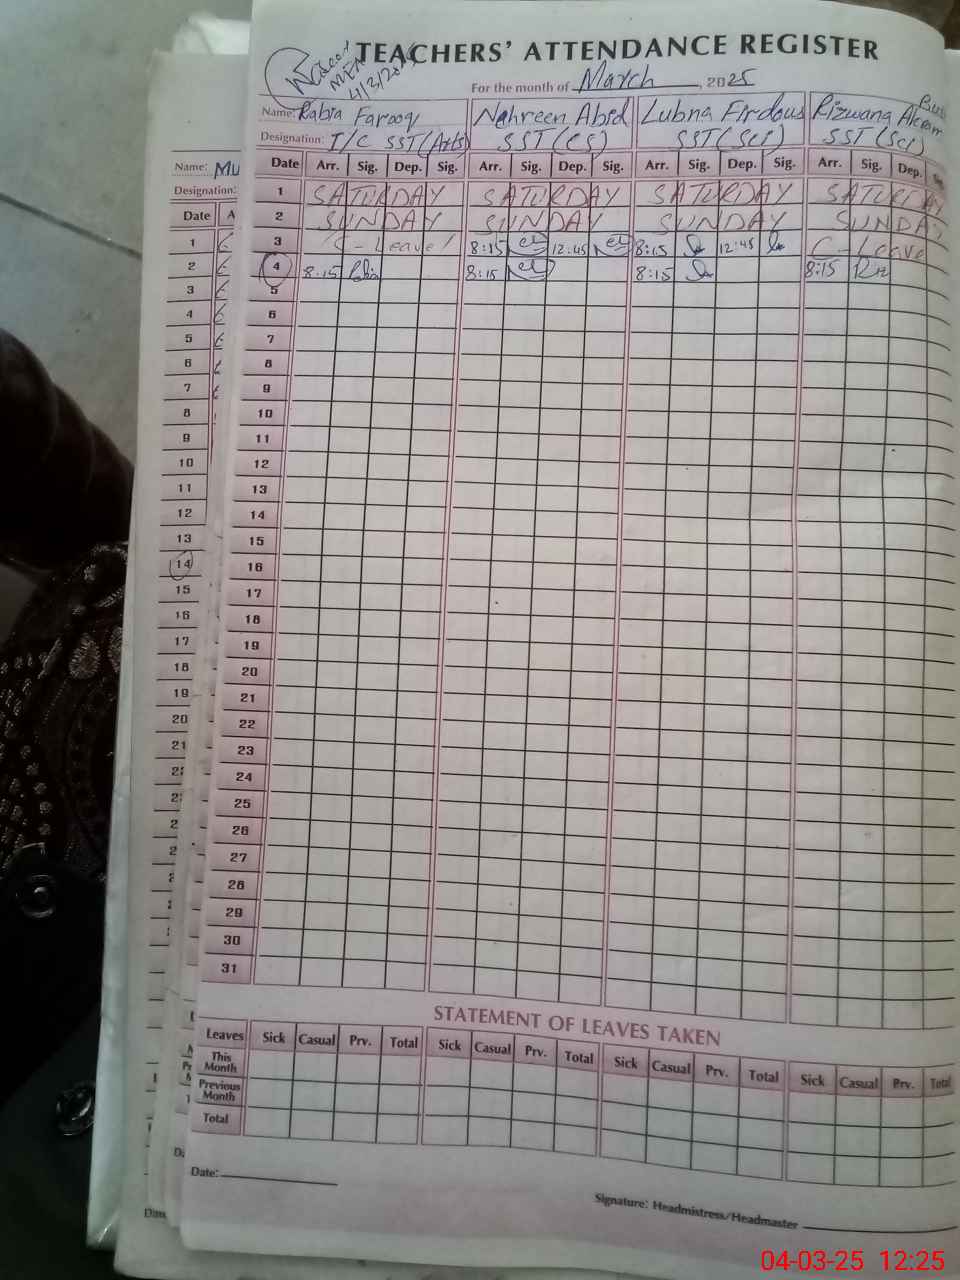 TEACHERS' ATTENDANCE REGISTER
MEA
4/3/2025
For the month of March, 2025
Name: Rabia Farooq Nahreen Abid Lubna Firdous Rizwana Akram
Designation: I/C SST (Arts) SST (CS) SST (Sci) SST (Sci)
Date Arr. Sig. Dep. Sig. Arr. Sig. Dep. Sig. Arr. Sig. Dep. Sig. Arr. Sig. Dep.
1 SATURDAY SATURDAY SATURDAY SATURDAY
2 SUNDAY SUNDAY SUNDAY SUNDAY
3 C-Leave 8:15 12:45 8:15 12:45 C-Leave
4 8:15 8:15 8:15 8:15
5
6
7
8
9
10
11
12
13
14
15
16
17
18
19
20
21
22
23
24
25
26
27
28
29
30
31
STATEMENT OF LEAVES TAKEN
Leaves Sick Casual Prv. Total Sick Casual Prv. Total Sick Casual Prv. Total Sick Casual Prv. Total
This Month
Previous Month
Total
Date:
Signature: Headmistress/Headmaster
Name: Mu
Designation:
Date A
1
2
3
4
5
6
7
8
9
10
11
12
13
14
15
16
17
18
19
20
21
04-03-25 12:25